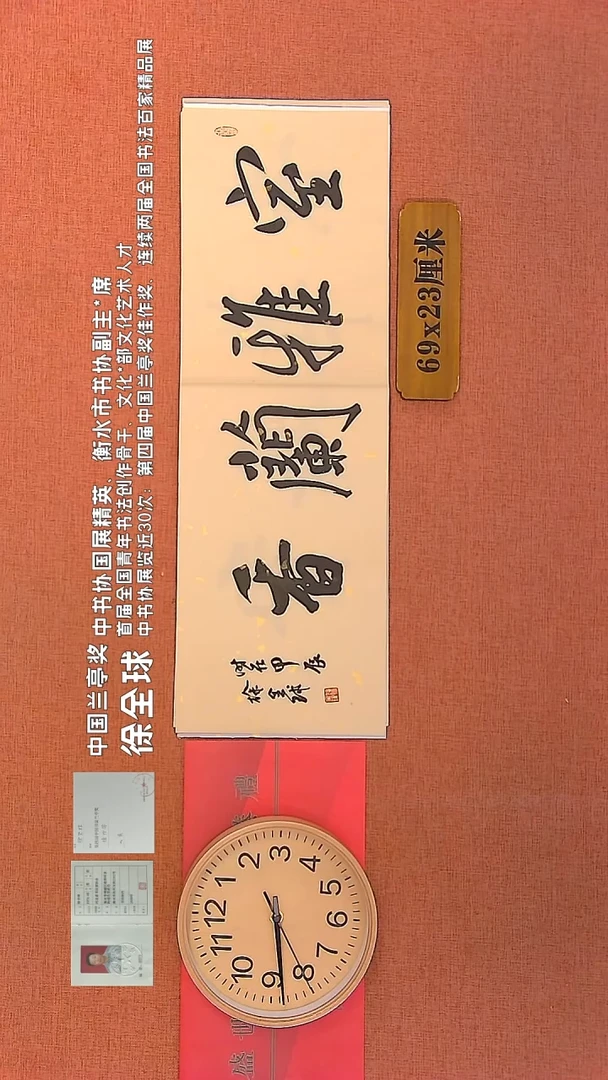 中国兰亭奖 中书协国展精英、衡水市书协副主*席
徐全球 首届全国青年书法创作骨干、文化*部文化艺术人才
中书协展览近30次：第四届中国兰亭奖佳作奖、连续两届全国书法百家精品展
室雅蘭香
歲在甲辰
徐全球
69x23厘米
盛世
禮
12 1 2 3 4 5 6 7 8 9 10 11